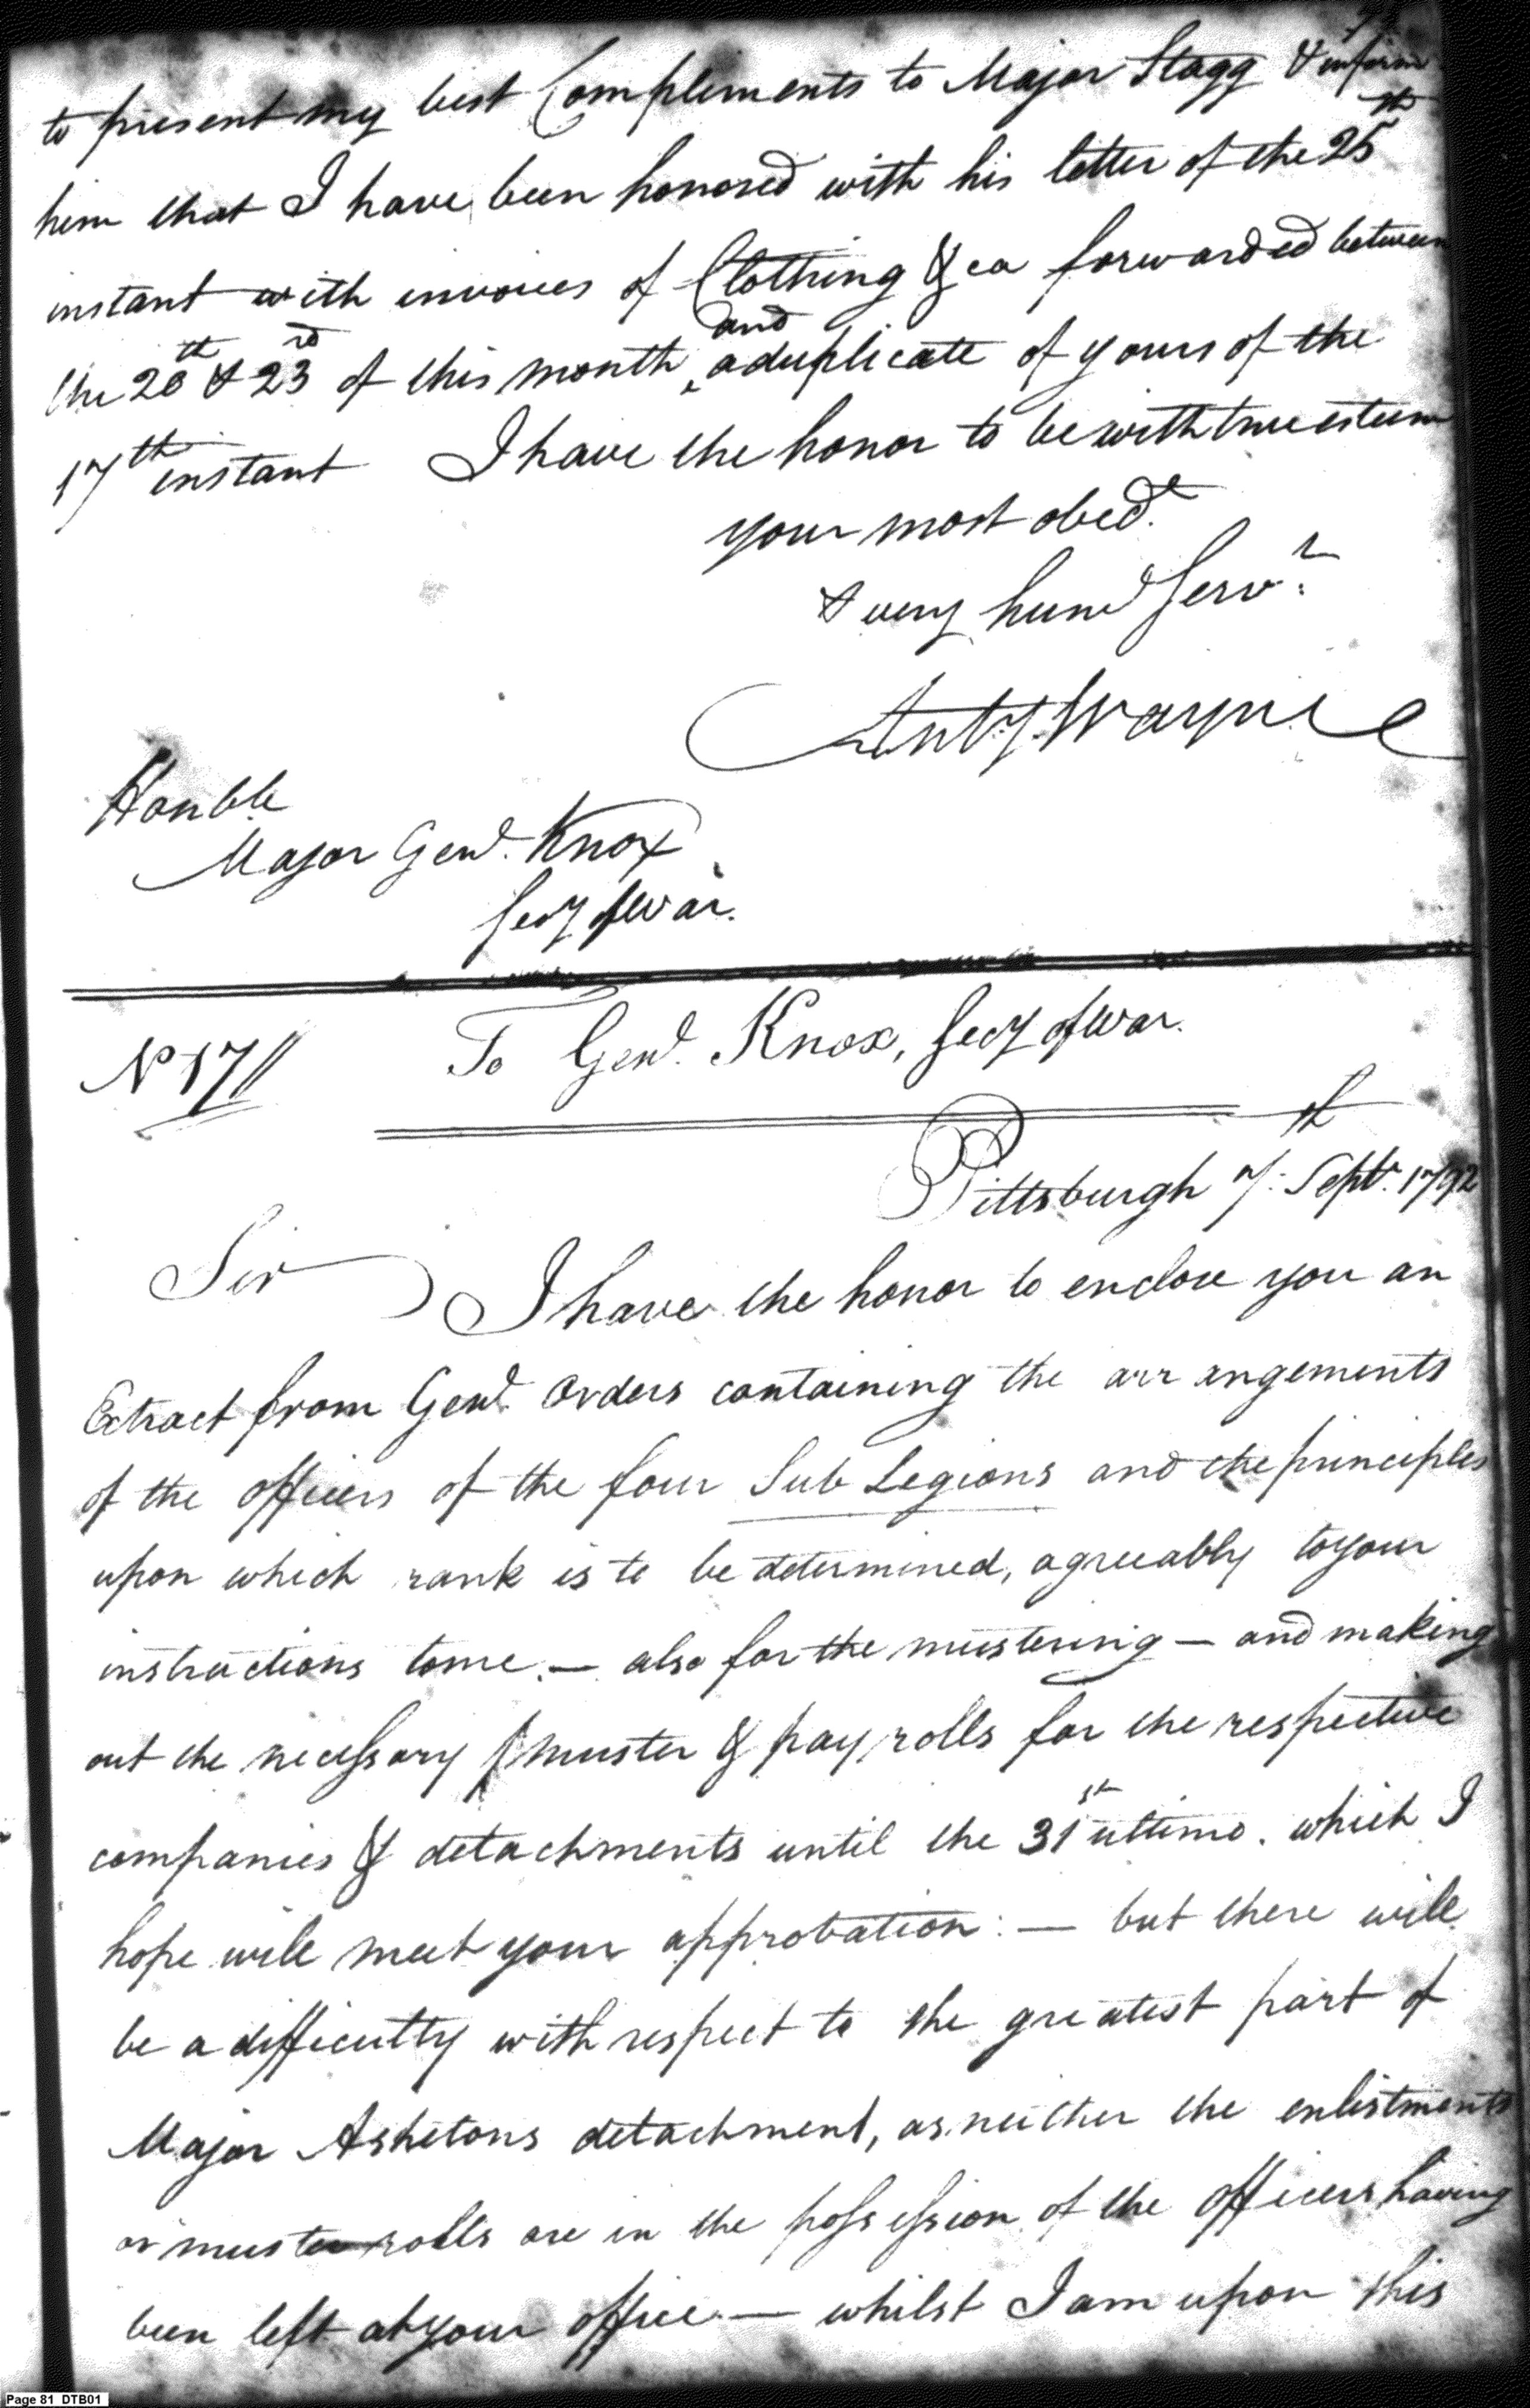 to present my best Complements to Major Stagg & inform
him that I have been honored with his letter of the 25th
instant with invoices of Clothing & ca forwarded between
and
the 20th & 23rd of this month, a duplicate of yours of the
17th instant I have the honor to be with true esteem
your most obedt.
& very hum Servt.
Anty. Wayne
Honble
Major Genl. Knox
Secy of War.
No 17//
To Genl. Knox, Secy of War.
Pittsburgh 7th Septr. 1792
Sir
I have the honor to enclose you an
Extract from Genl. Orders containing the arrangements
of the officers of the four Sub Legions and the principles
upon which rank is to be determined, agreeably to your
instructions to me. — also for the mustering — and making
out the necessary muster & pay rolls for the respective
companies & detachments until the 31st ultimo. which I
hope will meet your approbation: — but there will
be a difficulty with respect to the greatest part of
Major Ashetons detachment, as neither the enlistments
or muster rolls are in the possession of the officers having
been left at your office. — whilst I am upon this
Page 81 DTB01